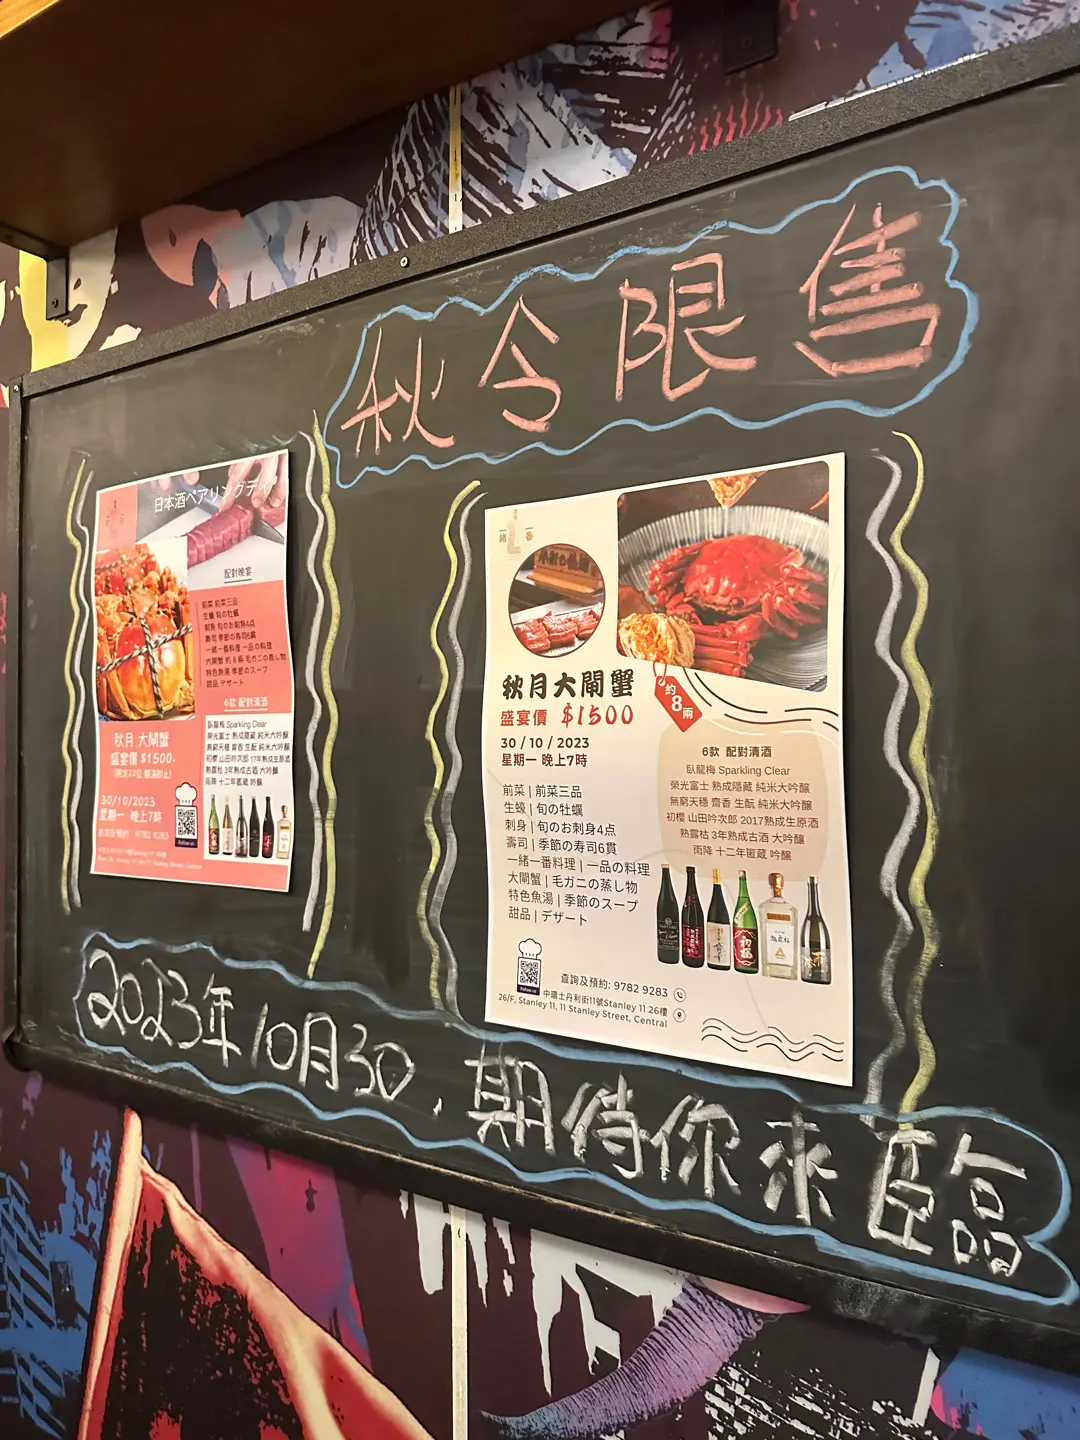 秋令限售
日本酒ペアリングディ
配對晚宴
前菜 前菜三品
生蠔 旬の牡蠣
刺身 旬のお刺身4点
壽司 季節の寿司6貫
一緒一番料理 一品の料理
大閘蟹 約8兩 毛ガニの蒸し物
特色魚湯 季節のスープ
甜品 デザート
6款 配對清酒
臥龍梅 Sparkling Clear
榮光富士 熟成隱藏 純米大吟醸
無窮天穩 齋香 生酛 純米大吟醸
初櫻 山田吟次郎 17年熟成生原酒
熟露枯 3年熟成古酒 大吟醸
雨降 十二年匿藏 吟醸
秋月 大閘蟹
盛宴價 $1500-
(限定22位 額滿即止)
30/10/2023
星期一 晚上7時
查詢及預約: 9782 9283
一緒 一番
秋月大閘蟹
約8兩
盛宴價 $1500
30 / 10 / 2023
星期一 晚上7時
前菜 | 前菜三品
生蠔 | 旬の牡蠣
刺身 | 旬のお刺身4点
壽司 | 季節の寿司6貫
一緒一番料理 | 一品の料理
大閘蟹 | 毛ガニの蒸し物
特色魚湯 | 季節のスープ
甜品 | デザート
6款 配對清酒
臥龍梅 Sparkling Clear
榮光富士 熟成隱藏 純米大吟醸
無窮天穩 齋香 生酛 純米大吟醸
初櫻 山田吟次郎 2017熟成生原酒
熟露枯 3年熟成古酒 大吟醸
雨降 十二年匿藏 吟醸
Follow us
查詢及預約: 9782 9283
中環士丹利街11號Stanley 11 26樓
26/F, Stanley 11, 11 Stanley Street, Central
2023年10月30, 期待你來臨